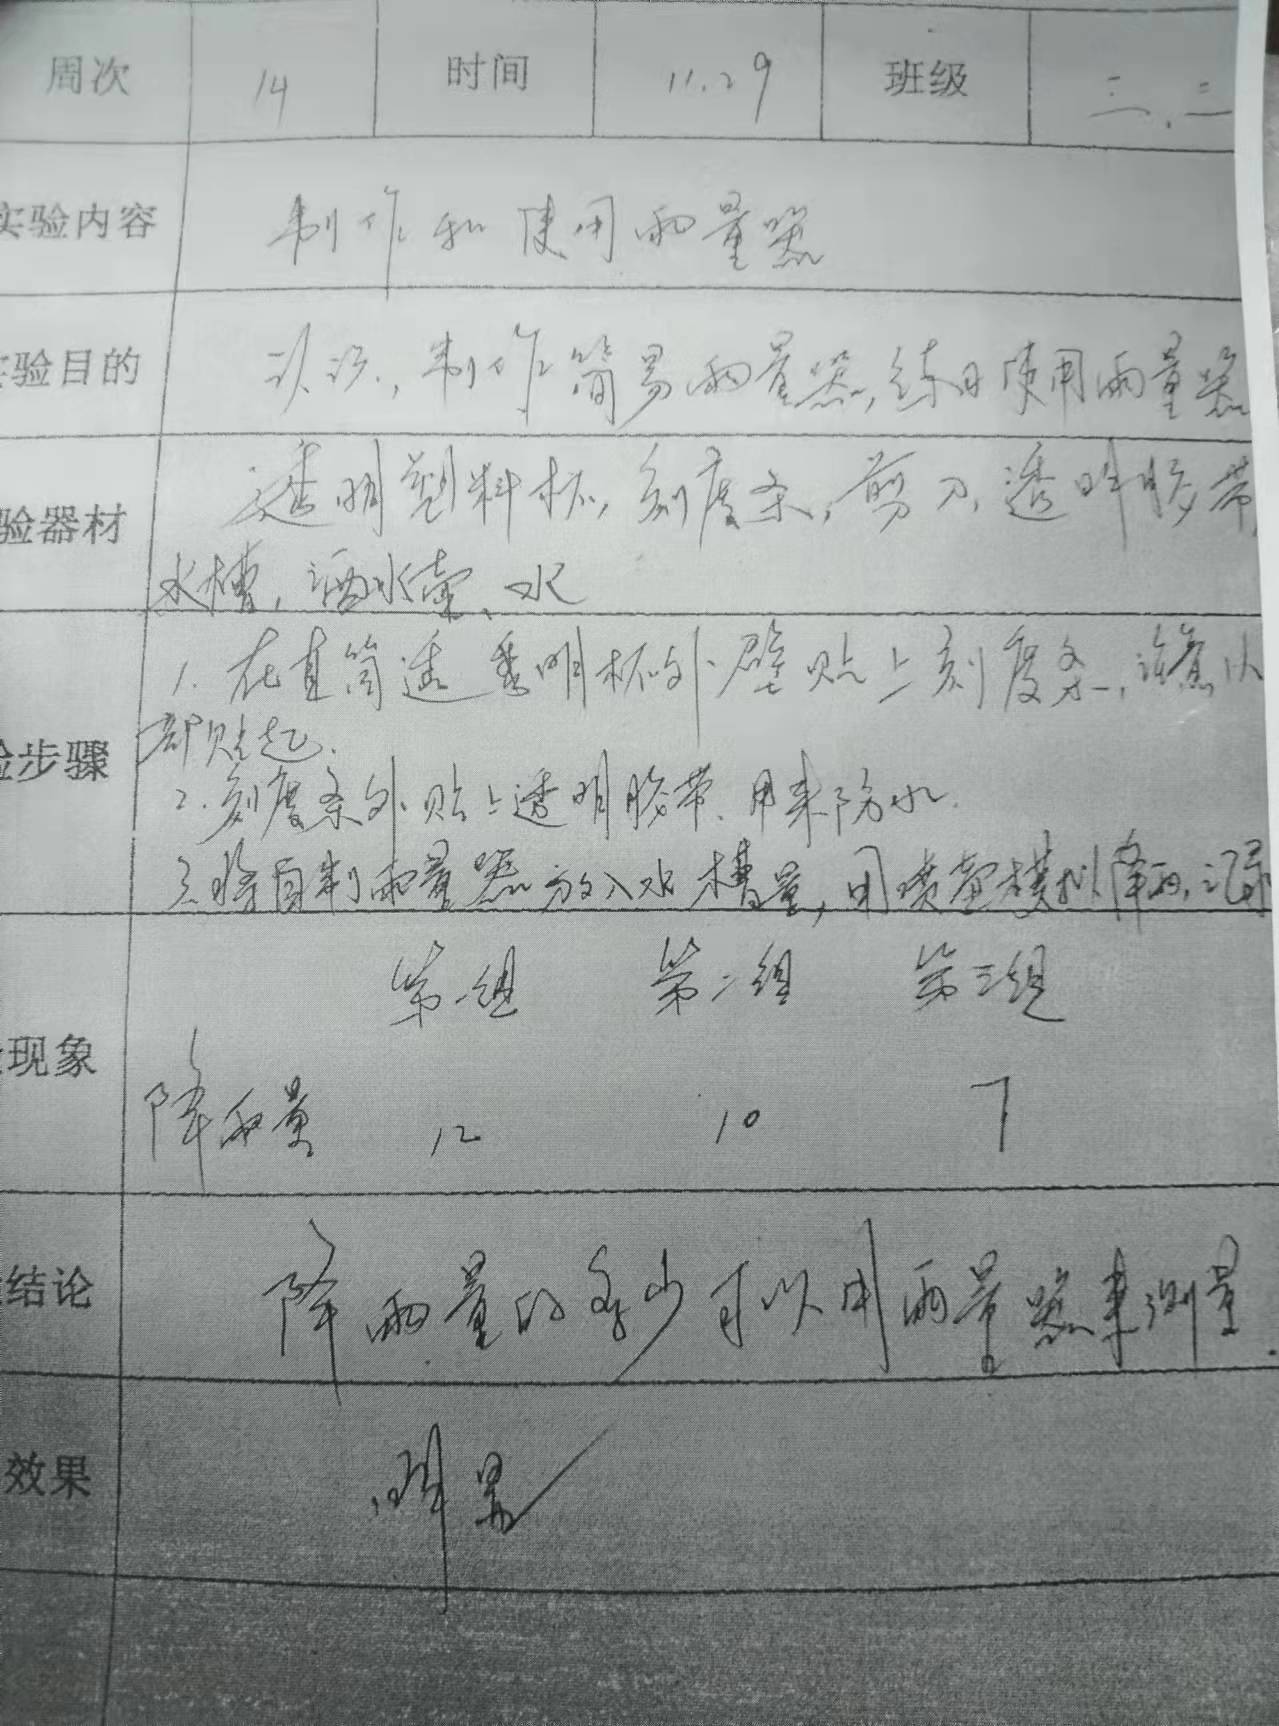 周次 14 时间 11.29 班级 三.二
实验内容 制作和使用雨量器
实验目的 认识,制作简易雨量器,练习使用雨量器
验器材 透明塑料杯,刻度条,剪刀,透明胶带,
水槽,洒水壶、水
1. 在直筒透明杯外壁贴上刻度条,注意从
部贴起.
步骤
2.刻度条外贴上透明胶带、用来防水.
3.将自制雨量器放入水槽量,用喷壶模拟降雨,记录
第一组 第二组 第三组
现象
降雨量 12 10 7
结论 降雨量的多少可以用雨量器来测量.
效果 明显